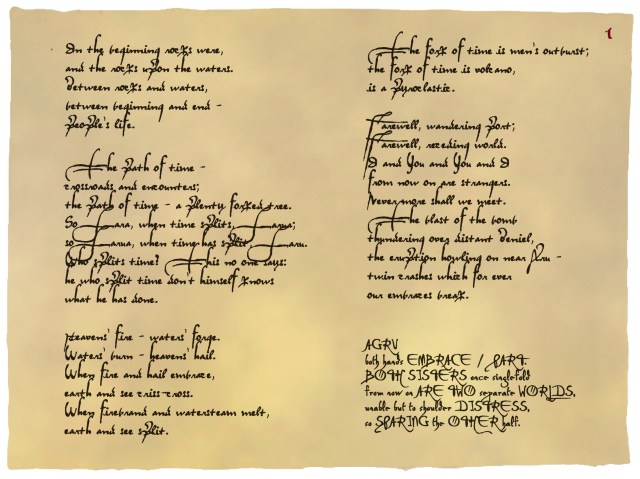 In the beginning rocks were,
and the rocks upon the waters.
Between rocks and waters,
between beginning and end -
People's life.
The Path of time -
crossroads and encounters;
the Path of time - a plenty forked tree.
So Lara, when time splits, Larua;
so Larua, when time has split Laru.
Who splits time? This no one says:
he who split time don't himself knows
what he has done.
Heavens' fire - waters' forge.
Waters' burn - heavens' hail.
When fire and hail embrace,
earth and see criss-cross.
When firebrand and watersteam melt,
earth and see split.
1
The fork of time is men's outburst;
the fork of time is volcano,
is a Pyroclastic.
Farewell, wandering Port;
Farewell, receding world.
I and You and You and I
from now on are strangers.
Nevermore shall we meet.
The blast of the bomb
thundering over distant Deniel,
the eruption howling on near Pru -
twin crashes which for ever
our embraces break.
AGRU
both hands EMBRACE / PART.
BOTH SISTERS once singlefold
from now on ARE TWO separate WORLDS,
unable but to shoulder DISTRESS,
so SPARING the OTHER half.